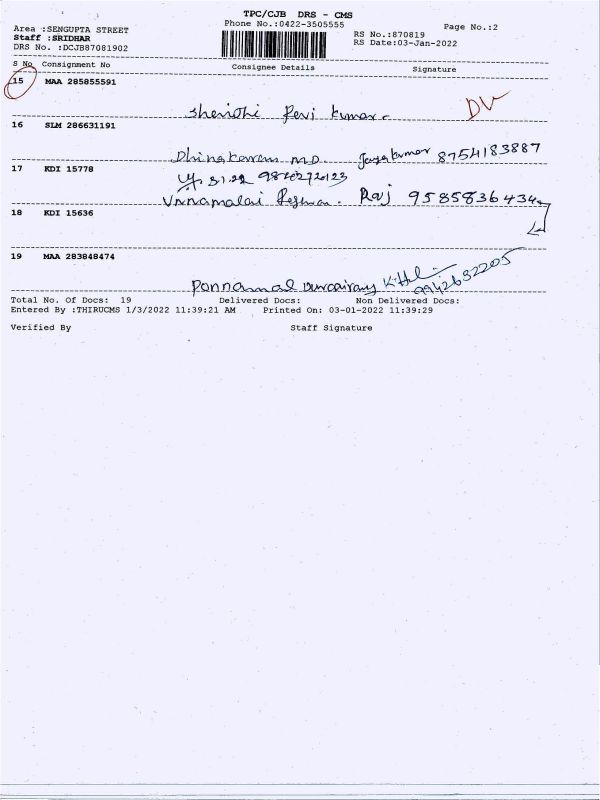 TPC/CJB DRS - CMS
Phone No.:0422-3505555
Page No.:2
Area :SENGUPTA STREET
RS No.:870819
Staff :SRIDHAR
RS Date:03-Jan-2022
DRS No. :DCJB87081902
S No Consignment No Consignee Details Signature
15 MAA 285855591
Ravi Kumar
16 SLM 286631191
M.D. Jayakumar 8754183887
17 KDI 15778
3.1.22
Raj 9585836434
18 KDI 15636
19 MAA 283848474
Ponnamal 9942632205
Total No. Of Docs: 19 Delivered Docs: Non Delivered Docs:
Entered By :THIRUCMS 1/3/2022 11:39:21 AM Printed On: 03-01-2022 11:39:29
Verified By Staff Signature